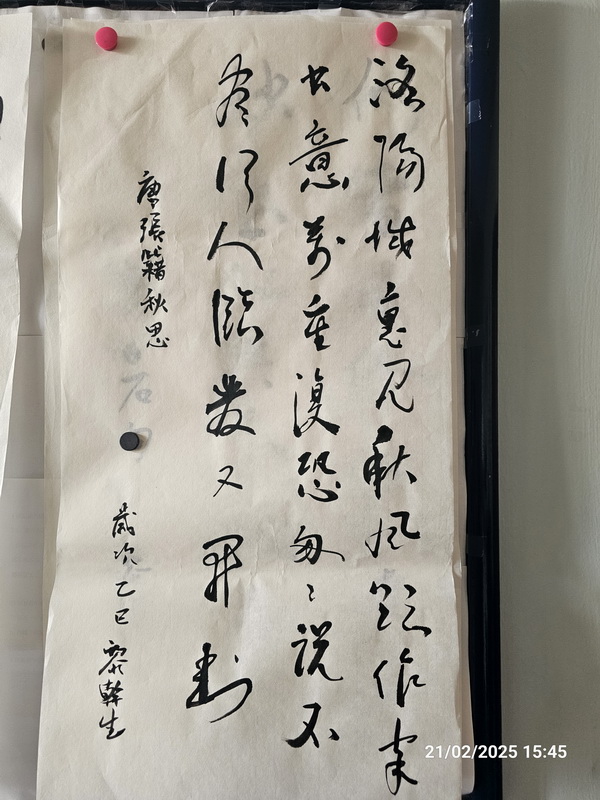 洛陽城裏見秋風欲作家
书意萬重復恐匆〻説不
尽行人臨發又開封
唐張籍秋思
歲次乙巳 黎幹生
21/02/2025 15:45